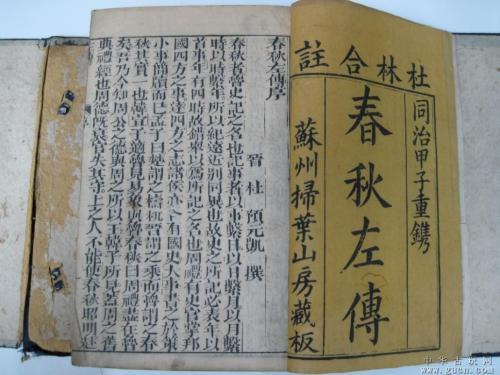 杜林合註
同治甲子重鐫
春秋左傳
蘇州掃葉山房藏板
春秋左傳序
晉 杜 預元凱 撰
春秋者魯史記之名也記事者以事繫日以日繫月以月繫
時以時繫年所以紀遠近別同異也故史之所記必表年以
首事年有四時故錯舉以爲所記之名也周禮有史官掌邦
國四方之事達四方之志諸侯亦各有國史大事書之於策
小事簡牘而已孟子曰楚謂之檮杌晉謂之乘而魯謂之春
秋其實一也韓宣子適魯見易象與魯春秋曰周禮盡在魯
矣吾乃今知周公之德與周之所以王韓子所見蓋周之舊
典禮經也周德既衰官失其守上之人不能使春秋昭明赴
中华古玩网
www.gucn.com